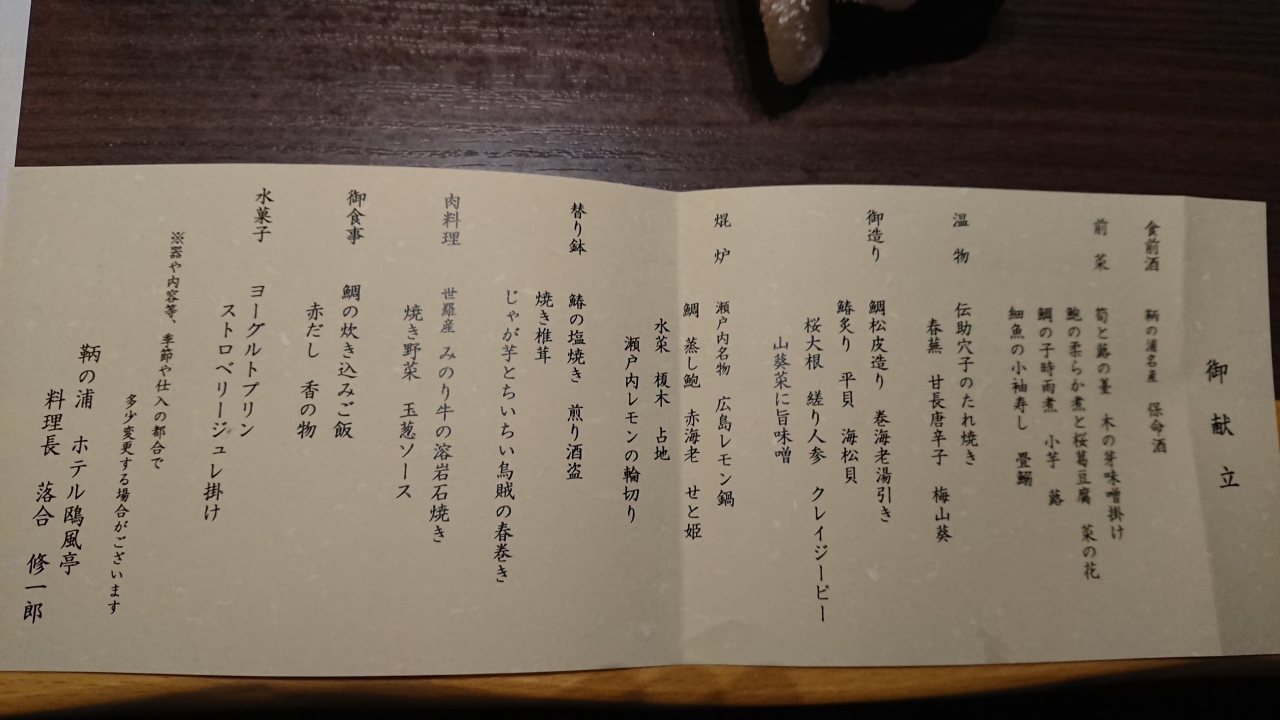 御献立
食前酒　鞆の浦名産　保命酒
前菜　筍と蕗の薹　木の芽味噌掛け
鮑の柔らか煮と桜葛豆腐　菜の花
鯛の子時雨煮　小芋　蕗
細魚の小袖寿し　畳鰯
温物　伝助穴子のたれ焼き
春蕪　甘長唐辛子　梅山葵
御造り　鯛松皮造り　巻海老湯引き
鰆炙り　平貝　海松貝
桜大根　縒り人参　クレイジーピー
山葵菜に旨味噌
焜炉　瀬戸内名物　広島レモン鍋
鯛　蒸し鮑　赤海老　せと姫
水菜　榎木　占地
瀬戸内レモンの輪切り
替り鉢　鰆の塩焼き　煎り酒盗
焼き椎茸
じゃが芋とちいちい烏賊の春巻き
肉料理　世羅産　みのり牛の溶岩石焼き
焼き野菜　玉葱ソース
御食事　鯛の炊き込みご飯
赤だし　香の物
水菓子　ヨーグルトプリン
ストロベリージュレ掛け
※器や内容等、季節や仕入の都合で
多少変更する場合がございます
鞆の浦　ホテル鴎風亭
料理長　落合　修一郎